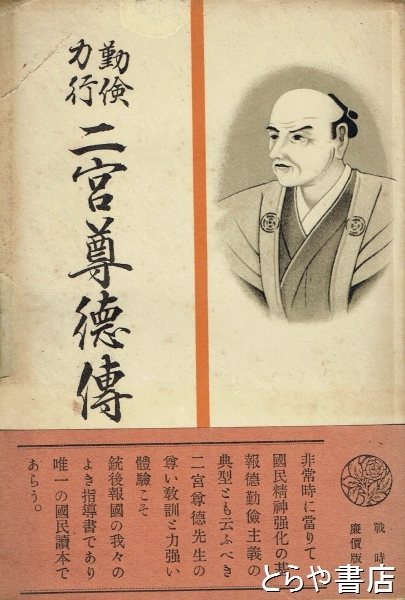 勤倹
力行
二宮尊徳傳
非常時に當りて
國民精神强化の基
報德勤儉主義の
典型とも云ふべき
二宮尊德先生の
尊い敎訓と力强い
體驗こそ
銃後報國の我々の
よき指導書であり
唯一の國民讀本で
あらう。
戰時
廉價版
とらや書店